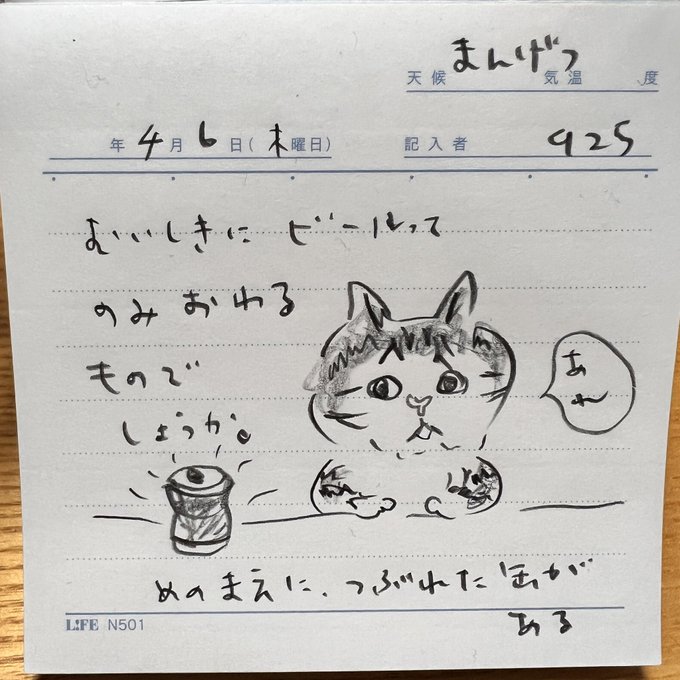 まんげつ
天候 気温 度
年4月6日(木曜日) 記入者 925
むいしきに ビールって
のみおわる
もので
しょうか。
あれ
めのまえに、つぶれた缶が
ある
LIFE N501